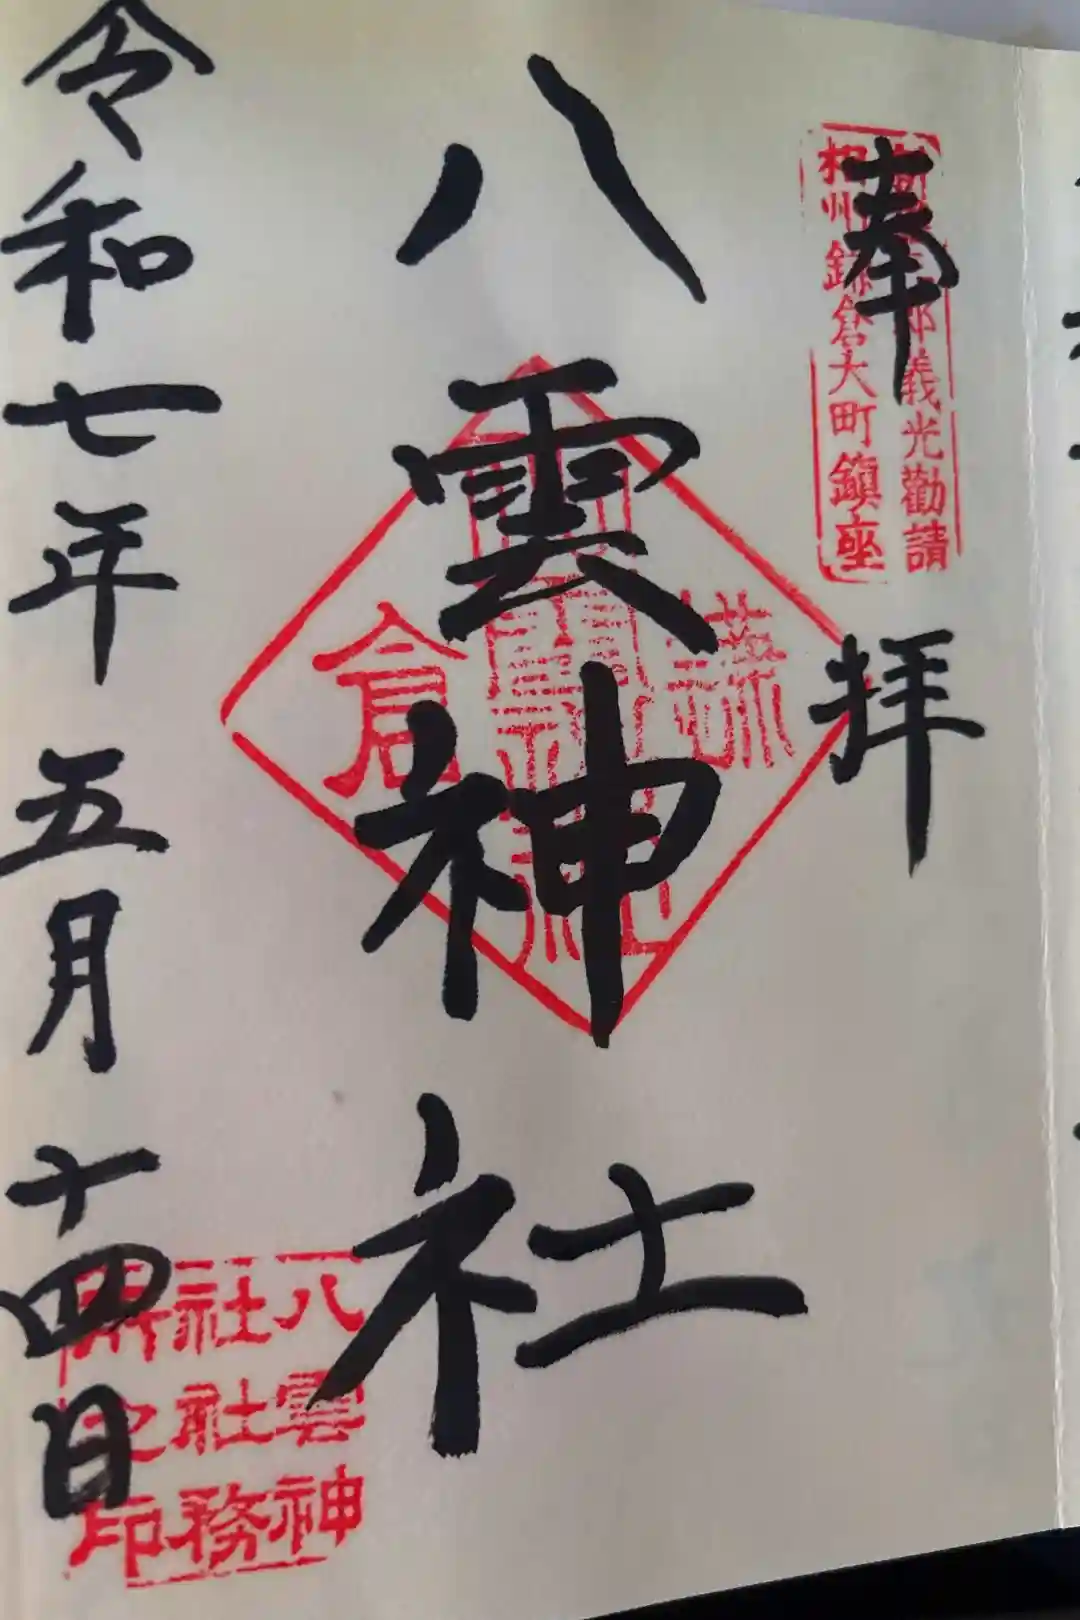 奉拝
郎義光勸請
相州鎌倉大町鎮座
八雲神社
鎌倉
八雲神
社社務
所之印
令和七年五月十四日